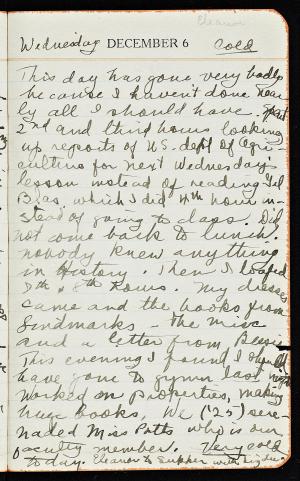 Eleanor
Wednesday DECEMBER 6 Cold
This day has gone very badly
because I haven't done near
ly all I should have. Spent
2nd and third hours looking
up reports of U.S. dep't of Agri-
culture for next Wednesday's
lesson instead of reading Gil
Blas, which I did 4th hour in-
stead of going to class. Did
not come back to lunch.
nobody knew anything
in History. Then I loafed
7th & 8th hours. My dresses
came and the books from
Lindmarks - the misc
and a letter from
This evening I found I should
have gone to gymn last night
Worked on properties, making
huge books, We ('25) sere-
naded Miss Potts who is our
faculty member. Very cold
today. Eleanor to supper with